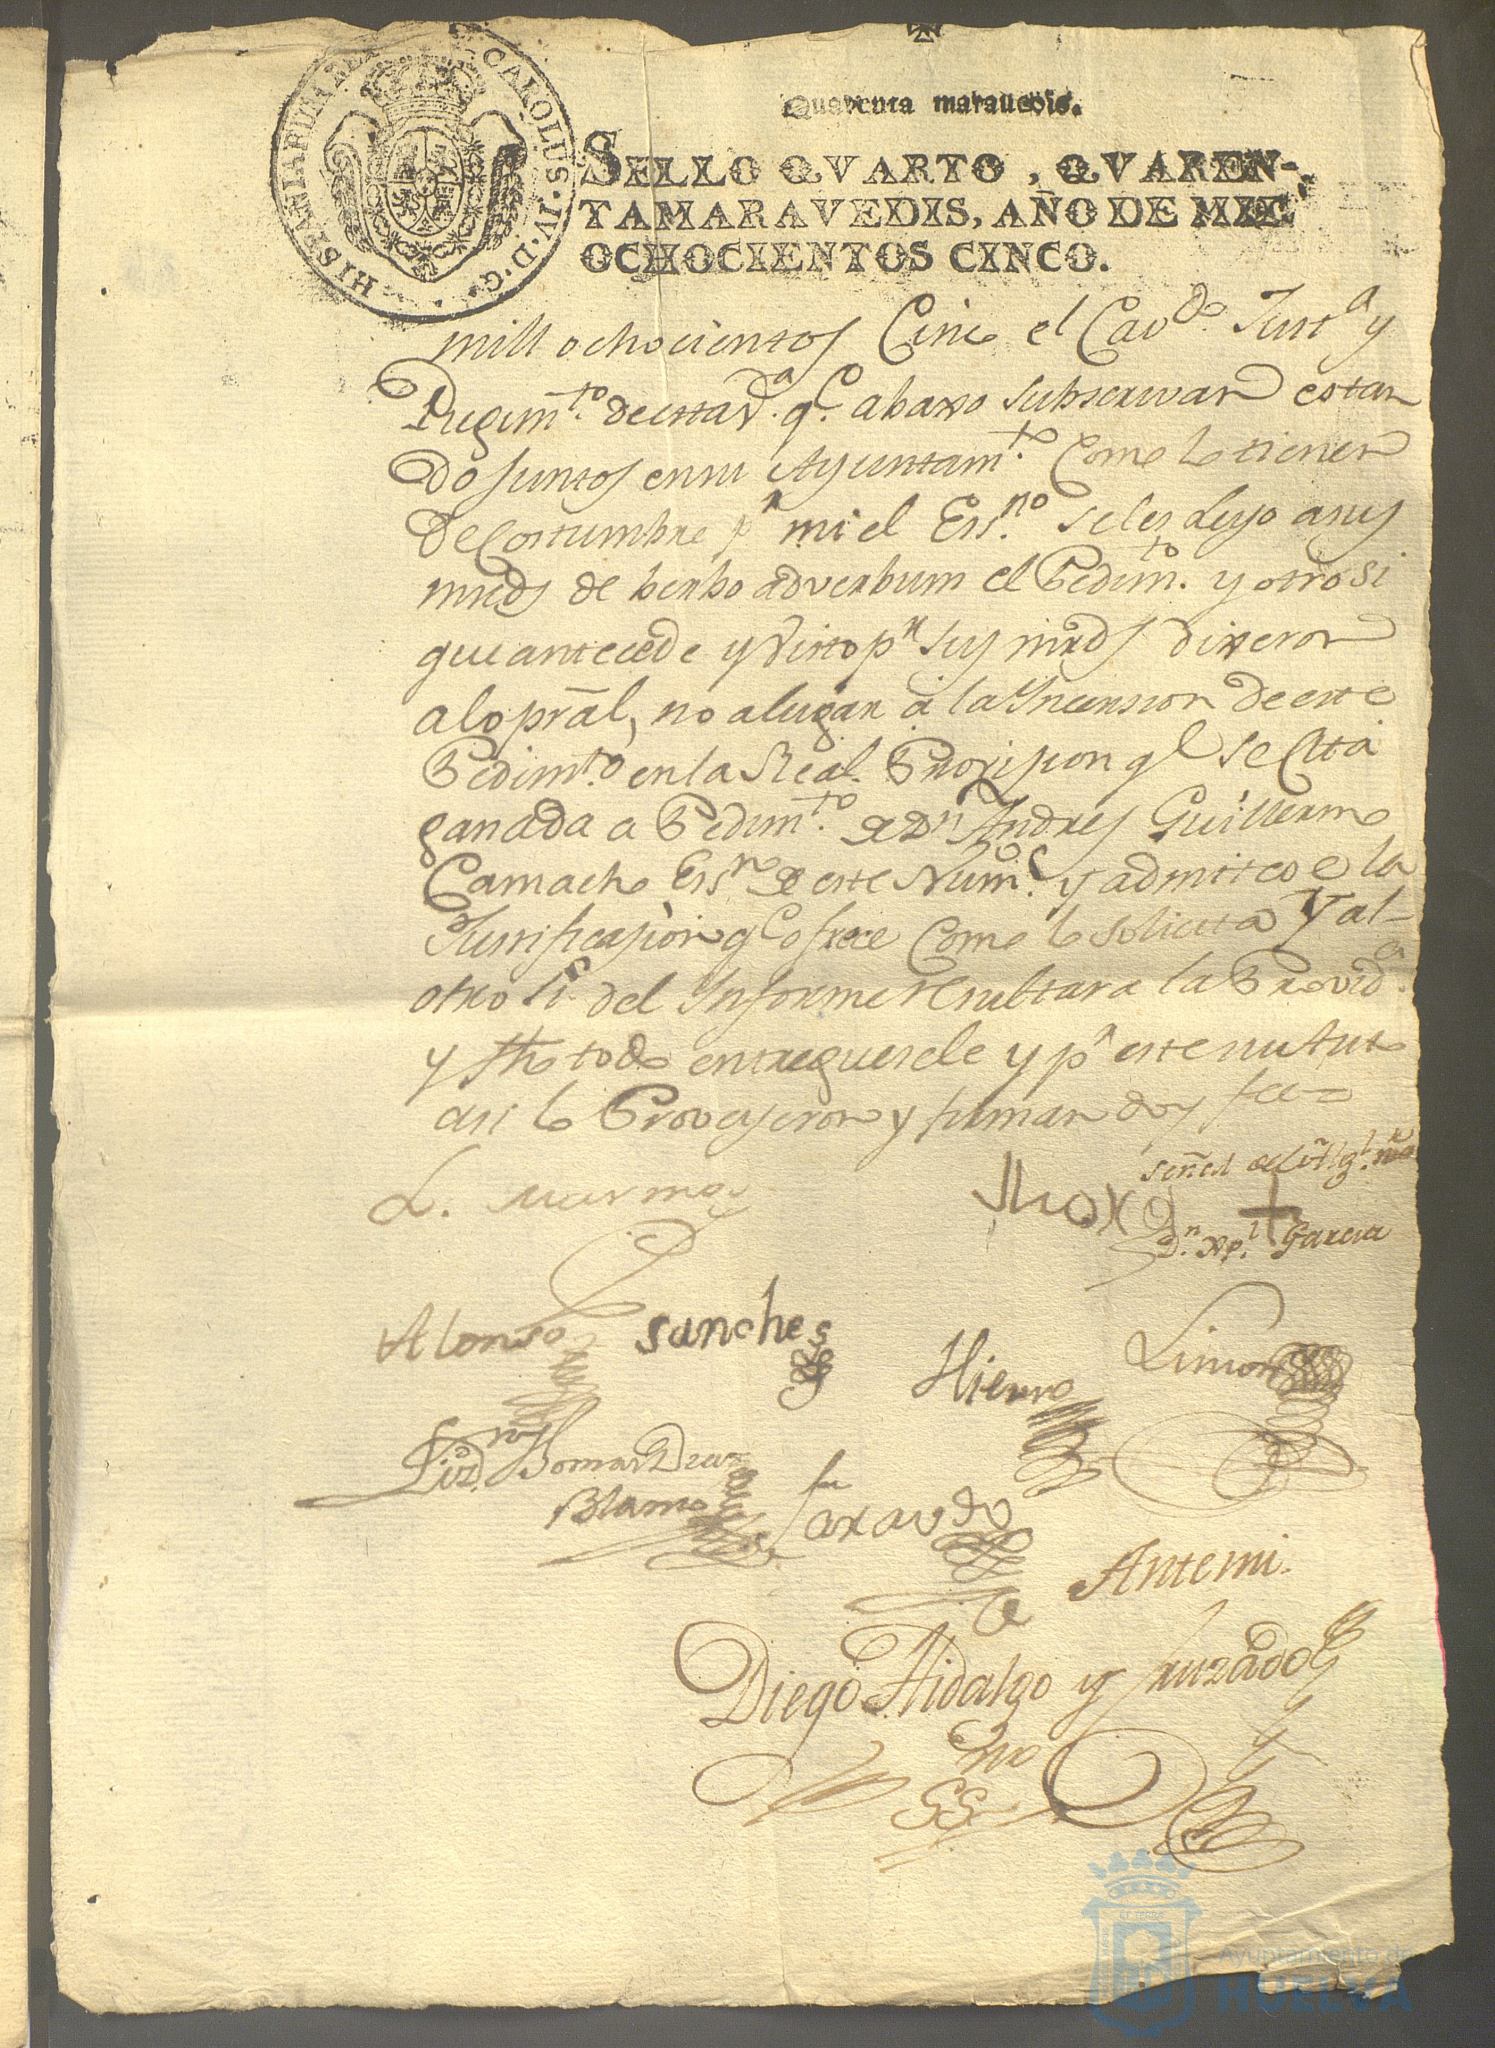 HISPANIARUM REX CAROLUS IV D G
Quarenta marauedis.
SELLO QVARTO, QVAREN-
TA MARAVEDIS, AÑO DE MIL
OCHOCIENTOS CINCO.
mill ochocientos Cinco el Cavdo. Justa y
Regimto. de esta Va. qe. abaxo subscrivan estan
do juntos en su Ayuntamto. Como lo tienen
de Costumbre pr mi el Essno. se les Leyo a sus
mrds de berbo adverbum el Pedimto. y otro si
que antecede y Visto pr sus mrds dixeron
a lo pral, no a lugar á la Incersion de este
Pedimto. en la Real Provision ql se Cita
ganada a Pedimto. de Dn Andres Guillermo
Camacho Essno de este Numo. y admitese la
Justificasion qe ofrece Como lo solicita Y al
otro si del Informe resultara la Provida.
y fho todo entreguesele y pr este su Auto
asi lo Proveyeron y firman doy fee=
L. Marmos
Señal de
Dn. Xpl. Garcia
Alonso sanches
Hierro
Limon
Lizdo. Diaz
Blanco
Faxardo
Antemi.
Diego Hidalgo y Cruzado
SSno
Ayuntamiento de
HUELVA